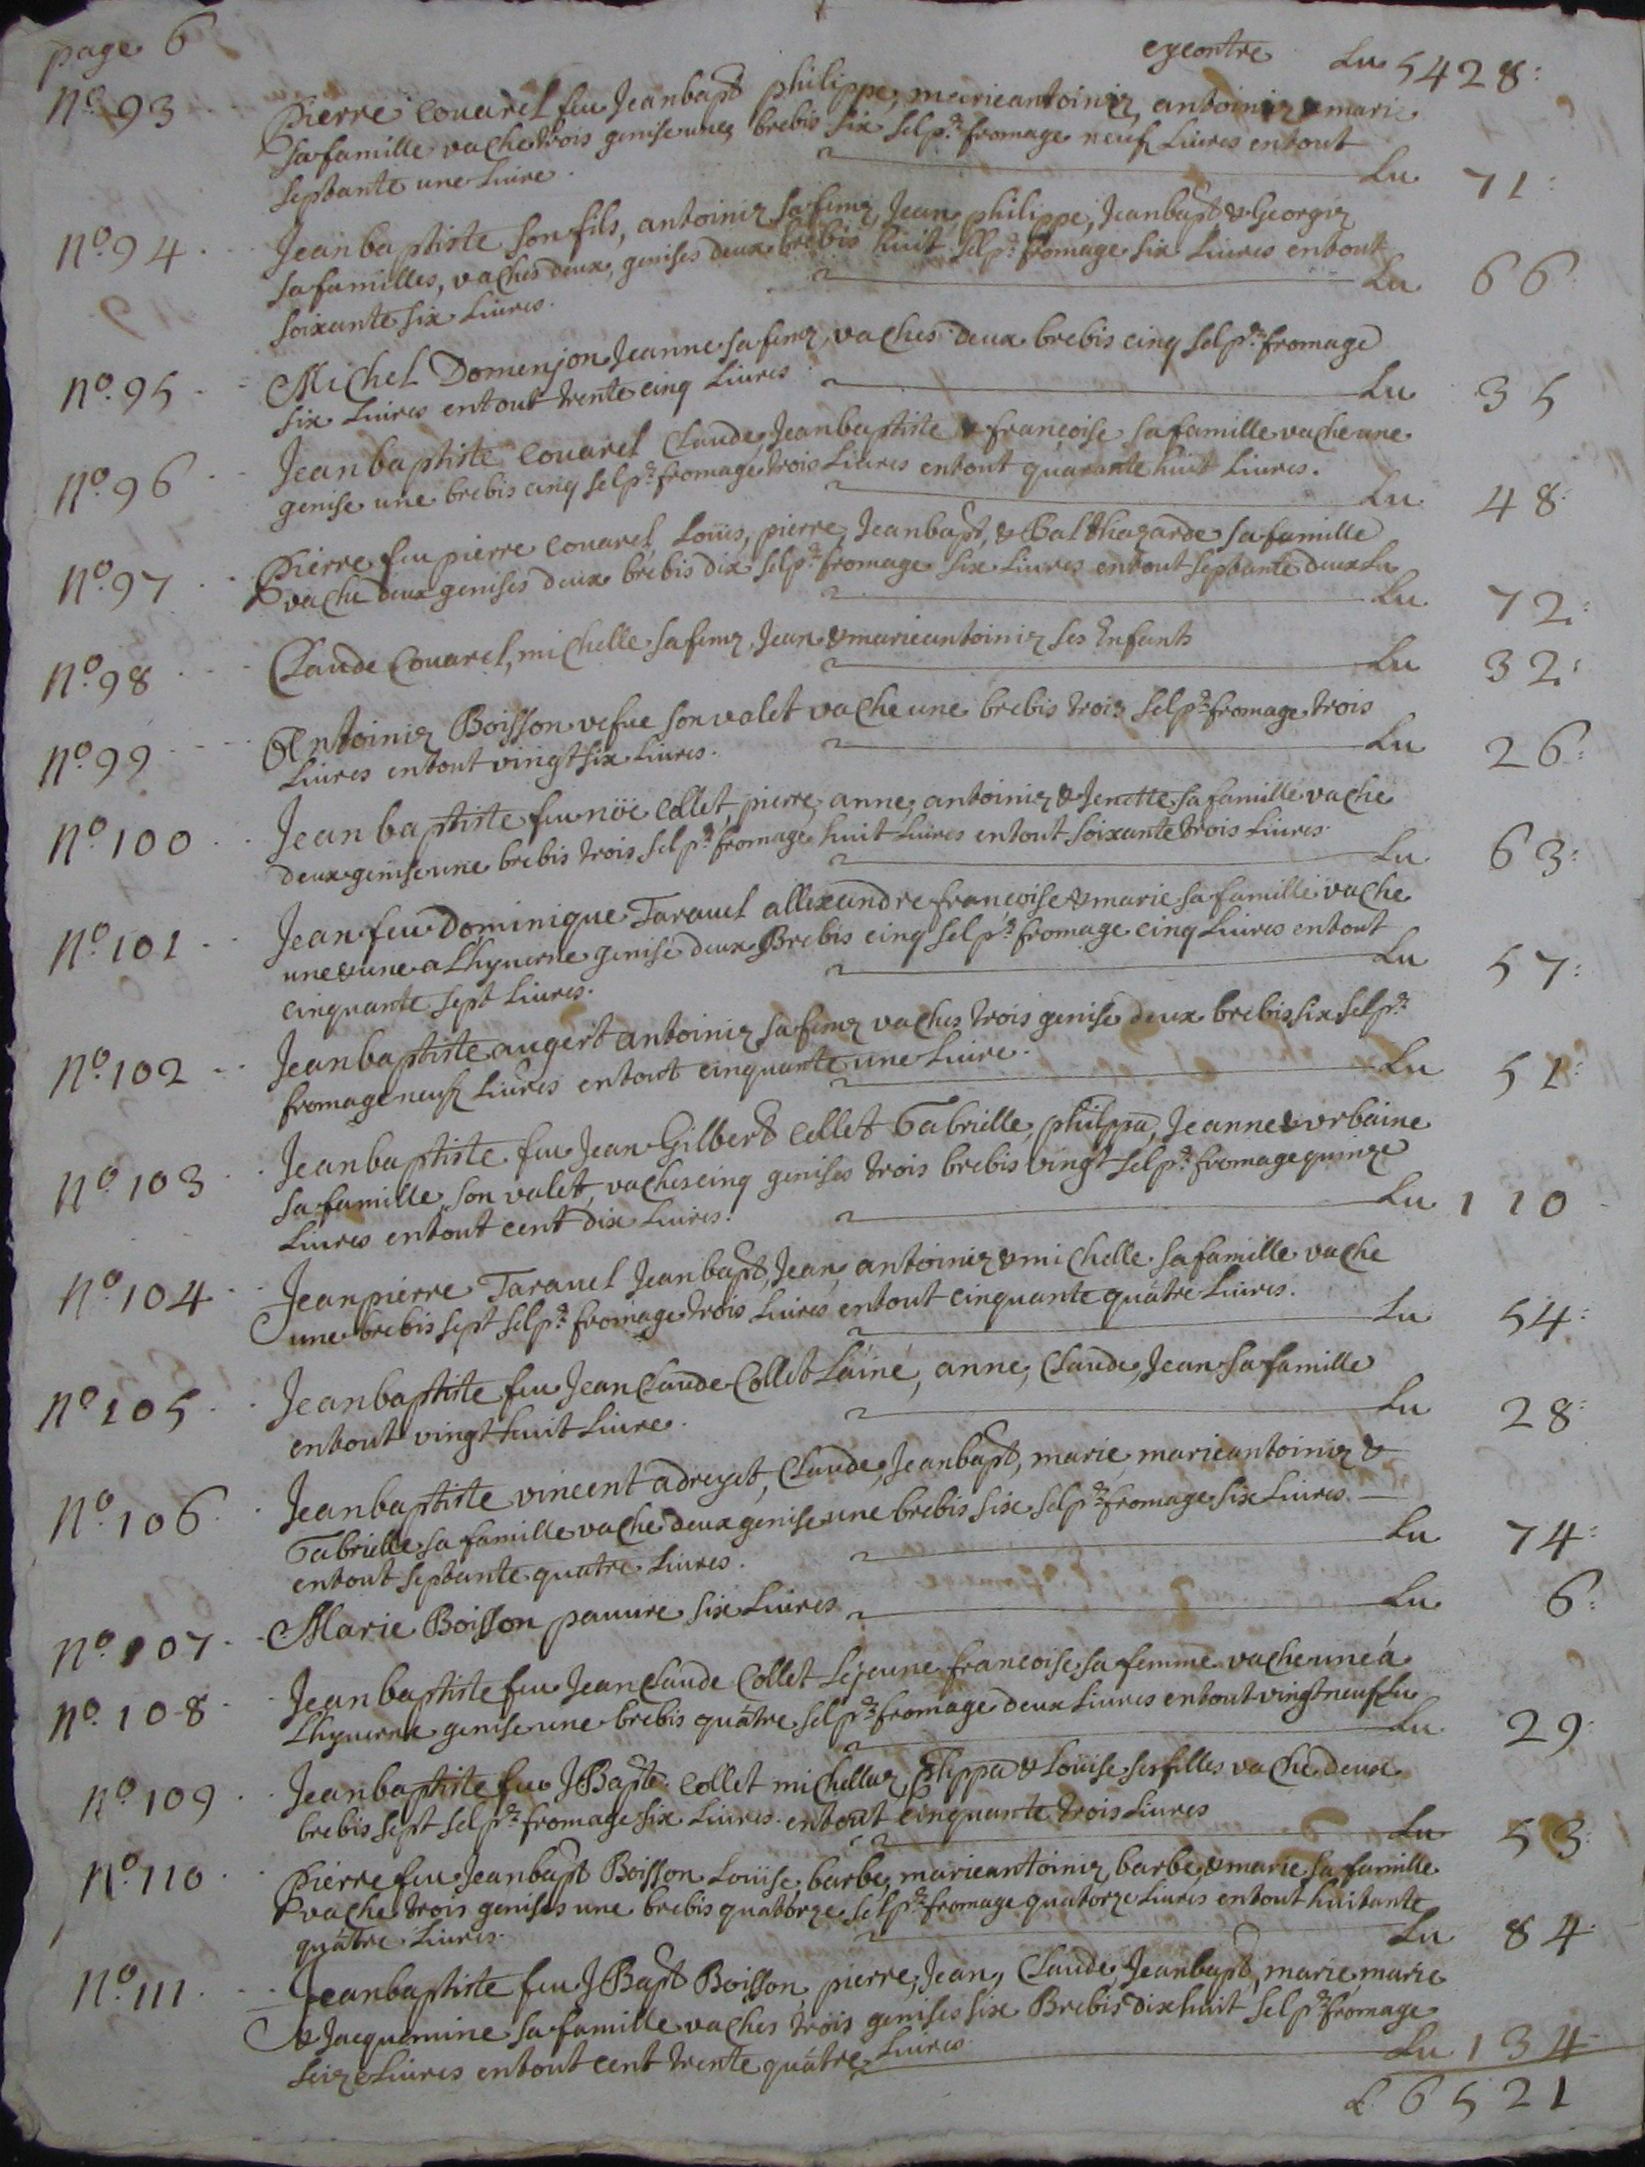 page 6
cycontre Lu 5428:
No. 93 Pierre Couarel feu Jeanbapt philippe, marieantoinie, antoinie & marie
sa famille vache trois genise une, brebis six sel pr. fromage neuf Livres entout
septante une Livre. Lu 71:
No. 94. Jeanbaptiste son fils, antoinie sa feme, Jean philippe, Jeanbapt & Georgie
sa familles, vaches deux, genises deux brebis huit sel pr. fromage six Livres entout
soixante six Livres. Lu 66
No. 95 Michel Domenjon Jeanne sa feme, vaches deux brebis cinq sel pr. fromage
six Livres entout trente cinq Livres Lu 35
No. 96 Jeanbaptiste Couarel Claude, Jeanbaptiste & françoise sa famille vache une
genise une brebis cinq sel pr. fromage trois Livres entout quarante huit Livres. Lu 48
No. 97 Pierre feu pierre Couarel, Loüis, pierre, Jeanbapt, & Balthazarde sa famille
vache deux genises deux brebis dix sel pr. fromage six Livres entout septante deux Lu
Lu 72:
No. 98 Claude Couarel, michelle sa feme, Jean & marieantoinie ses Enfants
Lu 32:
No. 99 Antoinie Boisson vefue son valet vache une brebis trois sel pr. fromage trois
Livres entout vingt six Livres. Lu 26:
No. 100 Jean baptiste feu nöe Collet, pierre, anne, antoinie & Jenette sa famille vache
deux genise une brebis trois sel pr. fromage huit Livres entout soixante trois Livres.
Lu 63:
No. 101 Jean feu Dominique Taravel allexandre françoise & marie sa famille vache
une & une a Lhyuerne genise deux Brebis cinq sel pr. fromage cinq Livres entout
cinquante sept Livres. Lu 57:
No. 102 Jeanbaptiste augert antoinie sa feme vaches trois genise deux brebis six sel pr.
fromage neuf Livres entout cinquante une Livre. Lu 51:
No. 103 Jeanbaptiste feu Jean Gilbert Collet Gabrielle, philippa, Jeanne & vrbaine
sa famille, son valet, vaches cinq genises trois brebis vingt sel pr. fromage quinze
Livres entout cent dix Livres. Lu 110
No. 104 Jeanpierre Taravel Jeanbapt, Jean, antoinie & michelle sa famille vache
une brebis sept sel pr. fromage trois Livres entout cinquante quatre Livres.
Lu 54:
No. 105 Jeanbaptiste feu Jean Claude Collet Lainé, anne, Claude, Jean sa famille
entout vingt huit Livre. Lu 28:
No. 106 Jeanbaptiste vincent adreyet, Claude, Jeanbapt, marie, marieantoinie &
Gabrielle sa famille vache deux genise une brebis six sel pr. fromage six Livres
entout septante quatre Livres. Lu 74:
No. 107 Marie Boisson pauure six Livres Lu 6:
No. 108 Jeanbaptiste feu Jean Claude Collet Lejeune françoise sa femme vache une á
Lhyuerne genise une brebis quatre sel pr. fromage deux Livres entout vingt neuf Lu
Lu 29:
No. 109 Jeanbaptiste feu JBapte. Collet & Loüise ses filles vache deux
brebis sept sel pr. fromage six Livres entout cinquante trois Livres Lu 53:
No. 110 Pierre feu Jeanbapt Boisson Loüise, barbe, marieantoinie, barbe & marie sa famille
vache trois genises une brebis quatorze sel pr. fromage quatorze Livres entout huitante
quatre Livres. Lu 84
No. 111 Jeanbaptiste feu JBapt Boisson, pierre, Jean, Claude, Jeanbapt, marie, marie
& Jacquemine sa famille vaches trois genises six Brebis dixhuit sel pr. fromage
seize Livres entout cent trente quatre Livres Lu 134
L 6521